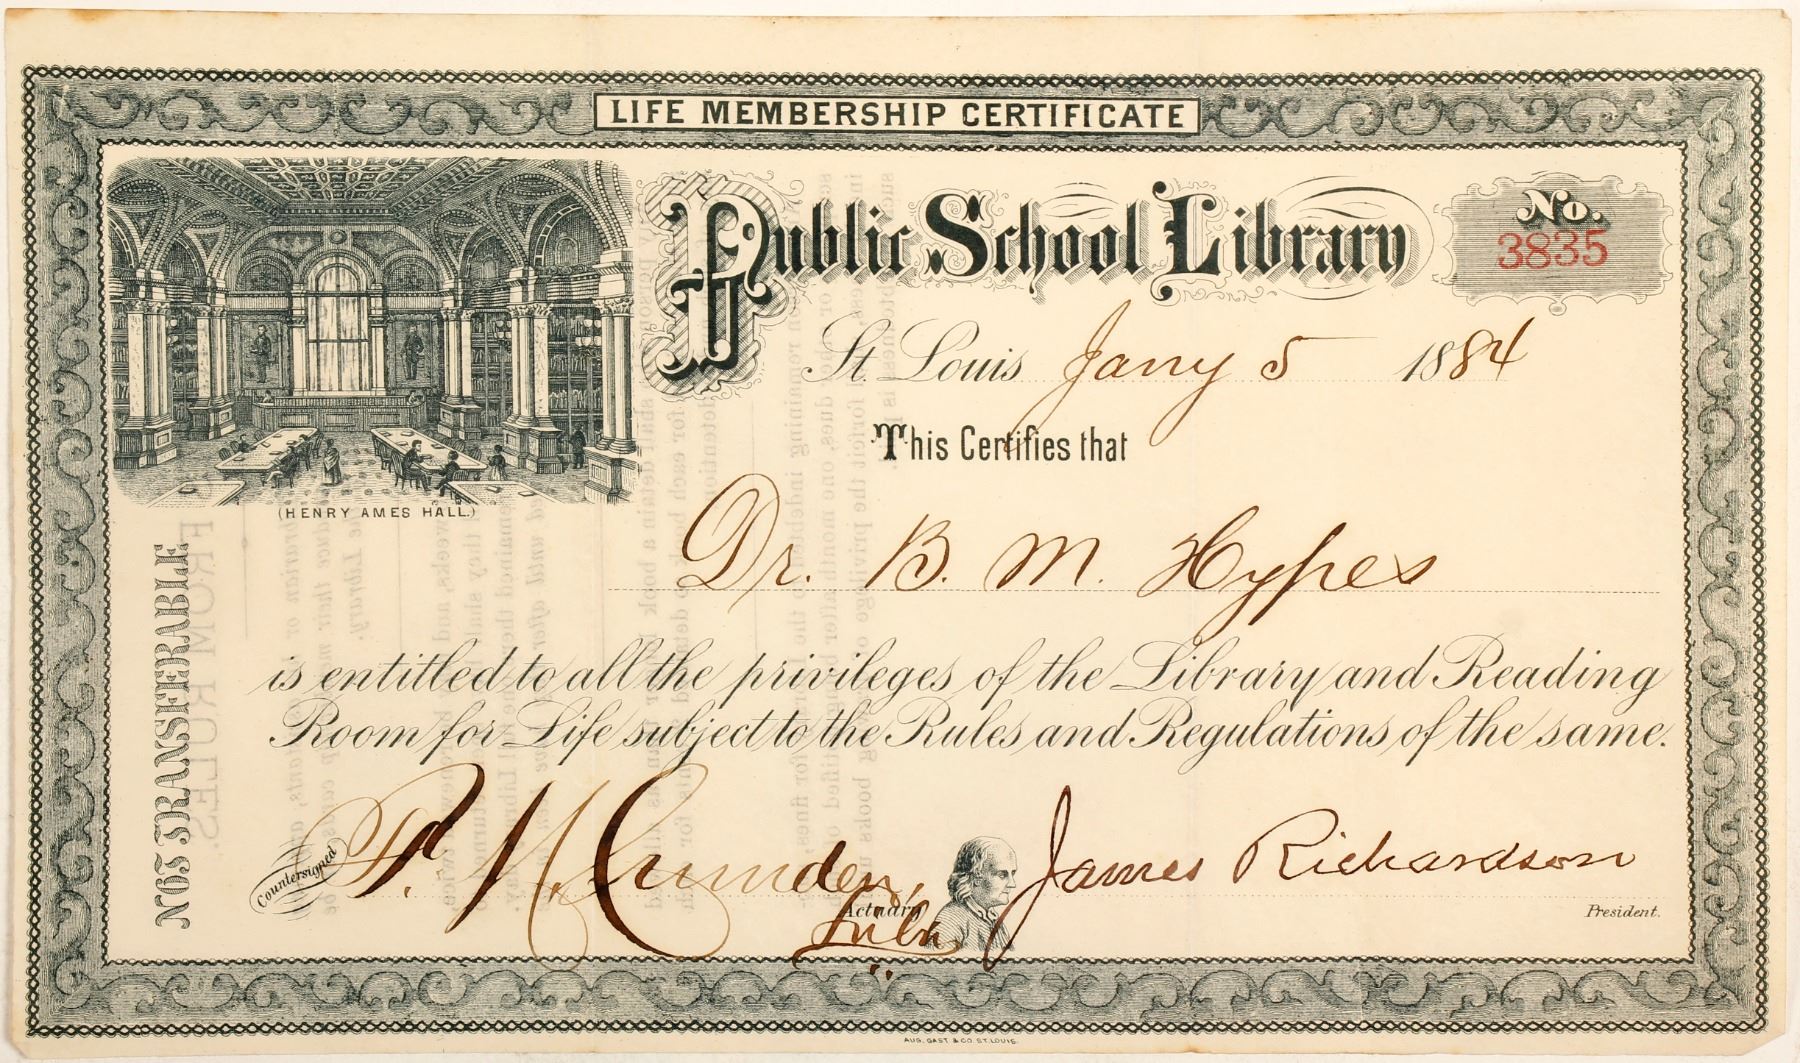 LIFE MEMBERSHIP CERTIFICATE
Public School Library
No.
3835
St. Louis Jany 5 1884
This Certifies that
(HENRY AMES HALL.)
Dr. B. M. Hypes
is entitled to all the privileges of the Library and Reading
Room for Life subject to the Rules and Regulations of the same.
NOT TRANSFERABLE
Countersigned
F. M. Crunden,
Actuary
Libn
James Richardson
President.
AUG. GAST & CO. ST. LOUIS.